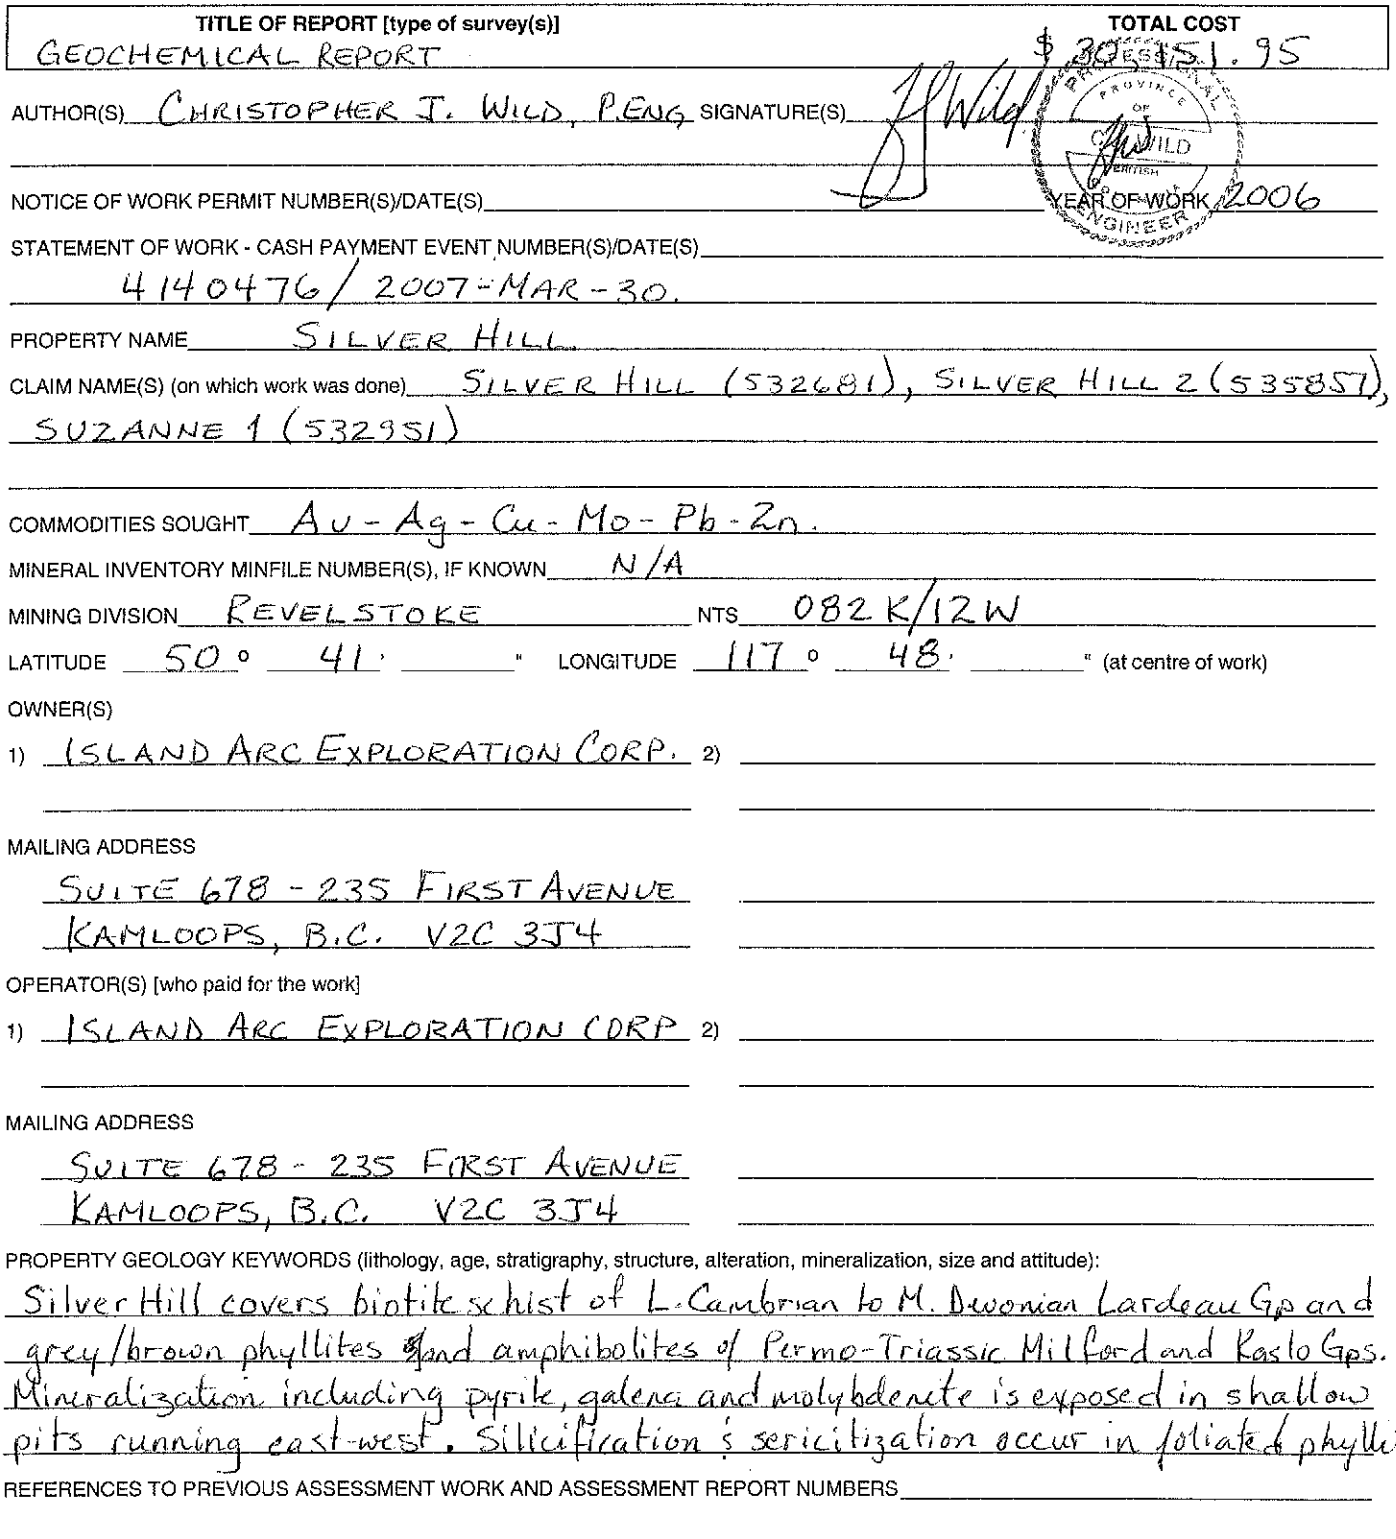 TITLE OF REPORT [type of survey(s)] TOTAL COST
GEOCHEMICAL REPORT $ 30,151.95
AUTHOR(S) CHRISTOPHER J. WILD, P.ENG SIGNATURE(S) Wild
PROFESSIONAL
PROVINCE
OF
C. J. WILD
BRITISH
ENGINEER
NOTICE OF WORK PERMIT NUMBER(S)/DATE(S) YEAR OF WORK 2006
STATEMENT OF WORK - CASH PAYMENT EVENT NUMBER(S)/DATE(S)
4140476/ 2007-MAR-30.
PROPERTY NAME SILVER HILL
CLAIM NAME(S) (on which work was done) SILVER HILL (532681), SILVER HILL 2 (535857),
SUZANNE 1 (532951)
COMMODITIES SOUGHT Au-Ag-Cu-Mo-Pb-Zn.
MINERAL INVENTORY MINFILE NUMBER(S), IF KNOWN N/A
MINING DIVISION REVELSTOKE NTS 082K/12W
LATITUDE 50 ° 41 ' " LONGITUDE 117 ° 48 ' " (at centre of work)
OWNER(S)
1) ISLAND ARC EXPLORATION CORP. 2)
MAILING ADDRESS
SUITE 678 - 235 FIRST AVENUE
KAMLOOPS, B.C. V2C 3J4
OPERATOR(S) [who paid for the work]
1) ISLAND ARC EXPLORATION CORP 2)
MAILING ADDRESS
SUITE 678 - 235 FIRST AVENUE
KAMLOOPS, B.C. V2C 3J4
PROPERTY GEOLOGY KEYWORDS (lithology, age, stratigraphy, structure, alteration, mineralization, size and attitude):
Silver Hill covers biotite schist of L. Cambrian to M. Devonian Lardeau Gp and
grey/brown phyllites and amphibolites of Permo-Triassic Milford and Kaslo Gps.
Mineralization including pyrite, galena and molybdenite is exposed in shallow
pits running east-west. Silicification & sericitization occur in foliated phylli
REFERENCES TO PREVIOUS ASSESSMENT WORK AND ASSESSMENT REPORT NUMBERS